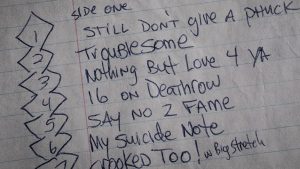 SIDE ONE
1 STILL DON'T GIVE A PHUCK
2 TROUBLESOME
3 NOTHING BUT LOVE 4 YA
4 16 ON DEATHROW
5 SAY NO 2 FAME
6 MY SUICIDE NOTE
CROOKED TOO! W Big Stretch